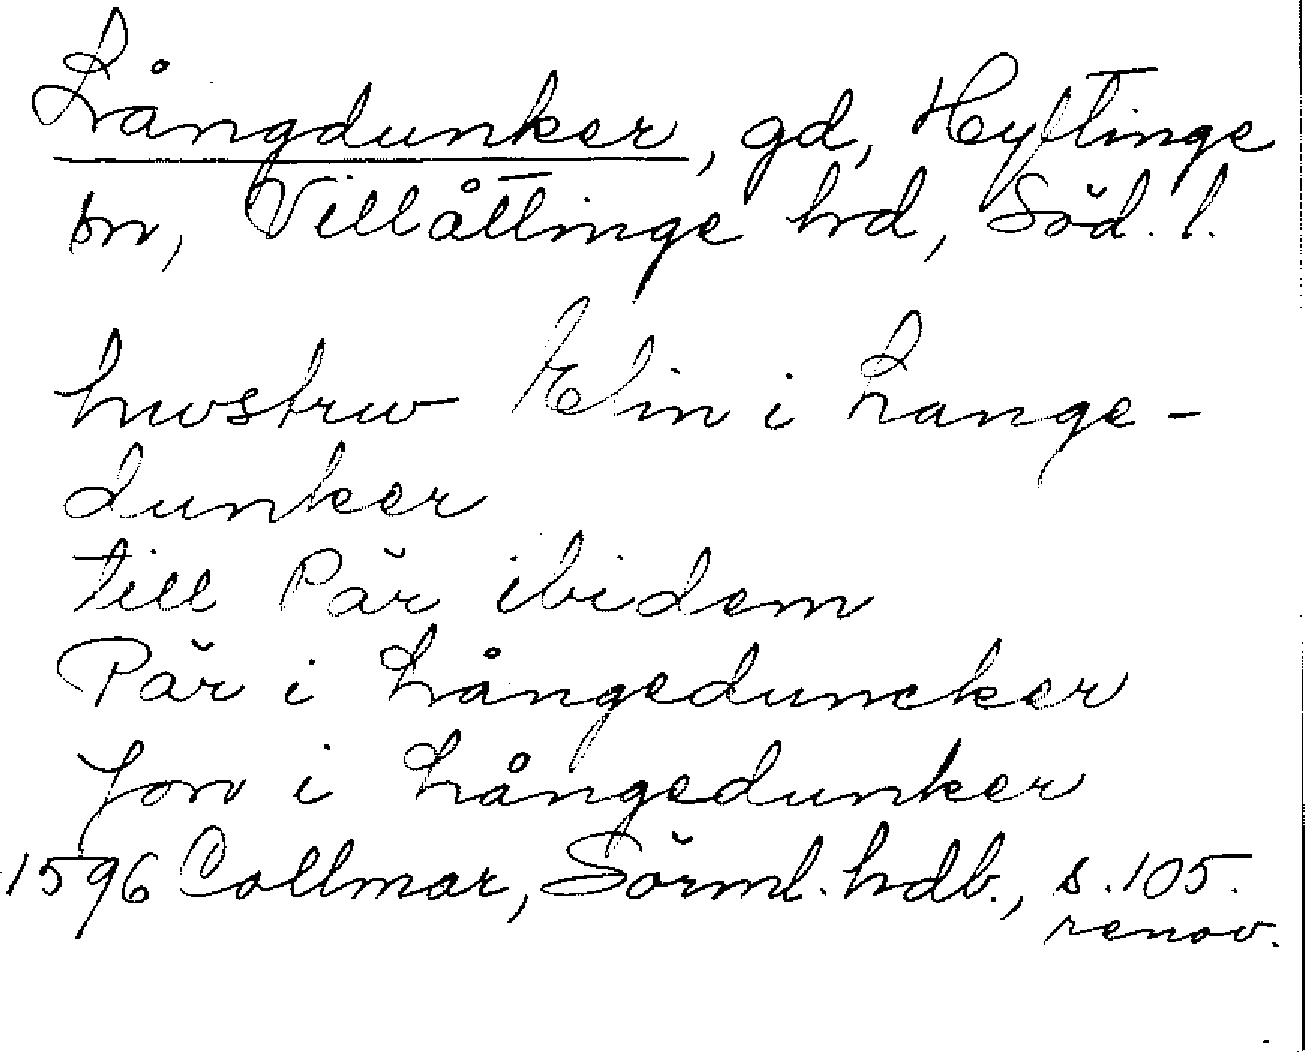 Långdunker, gd, Hyltinge
sn, Villåttinge hrd, Söd. l.
huustruu Elin i Lange-
dunker
till Pär ibidem
Pär i Långeduncker
Jon i Långedunker
1596 Collmar, Sörml. hdb., s. 105.
renov.